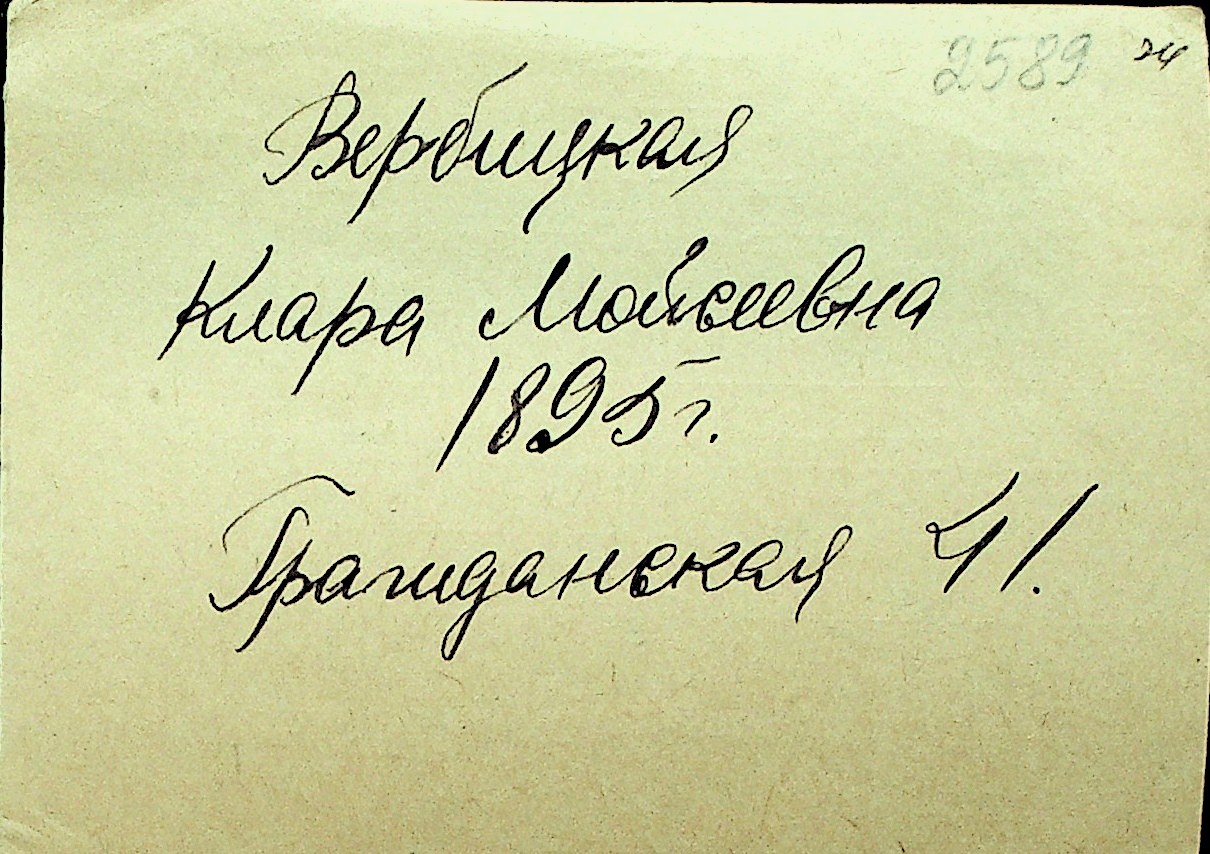 2589
Вербицкая
Клара Мойсеевна
1895 г.
Гражданская 41.